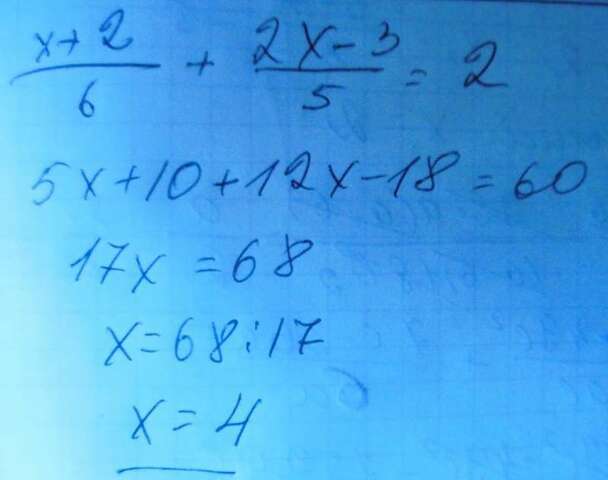 (x+2)/6 + (2x-3)/5 = 2
5x+10+12x-18=60
17x=68
x=68:17
x=4